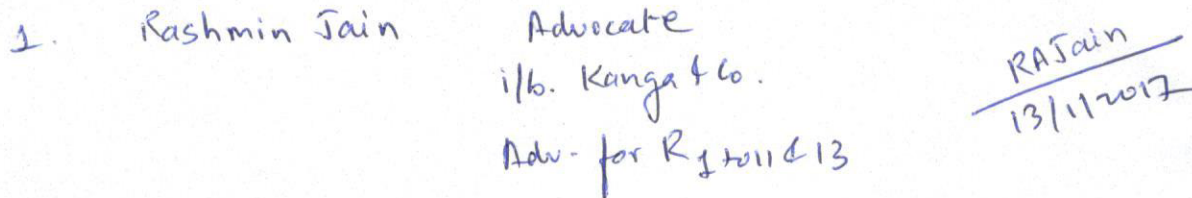 1. Rashmin Jain Advocate
i/b. Kanga & Co.
Adv- for R 1 to 11 & 13
RAJain
13/1/2017